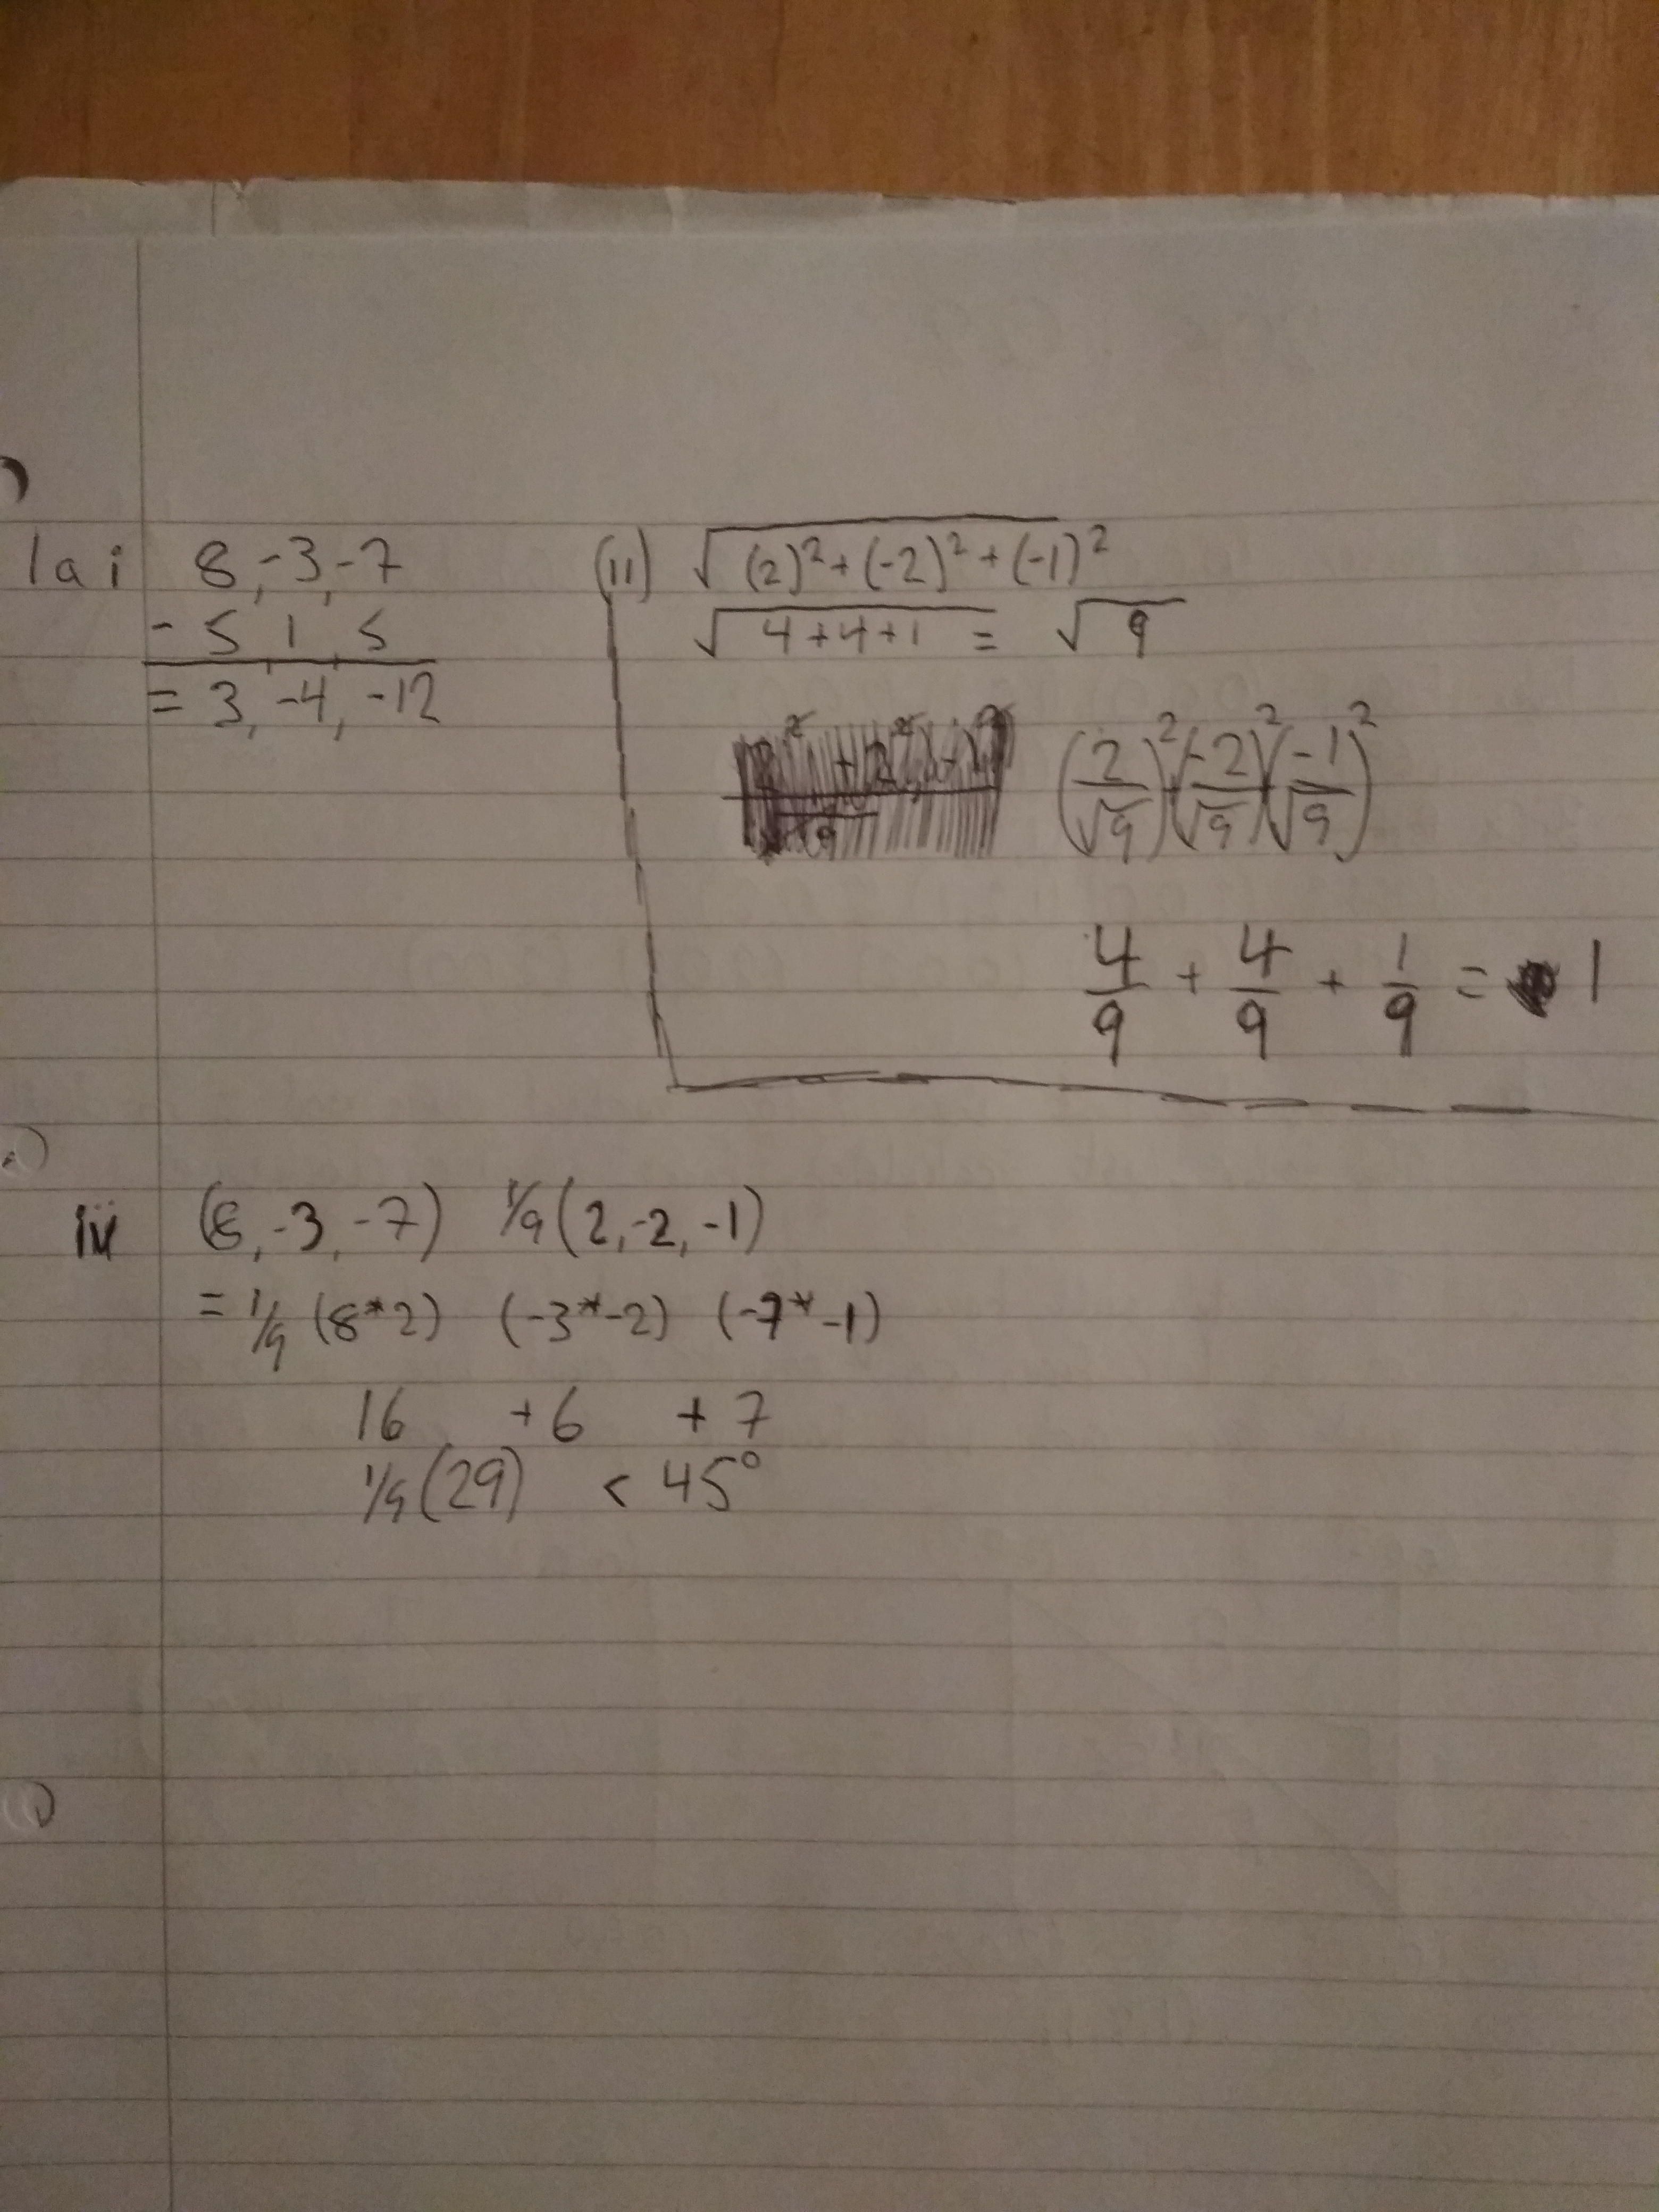 1a i 8, -3, -7
- 5, 1, 5
= 3, -4, -12
(ii) √(2)² + (-2)² + (-1)²
√4 + 4 + 1 = √9
(2/√9)² (-2/√9)² (-1/√9)²
4/9 + 4/9 + 1/9 = 1
iii (8, -3, -7) 1/9 (2, -2, -1)
= 1/9 (8*2) (-3*-2) (-7*-1)
16 + 6 + 7
1/9 (29) < 45°